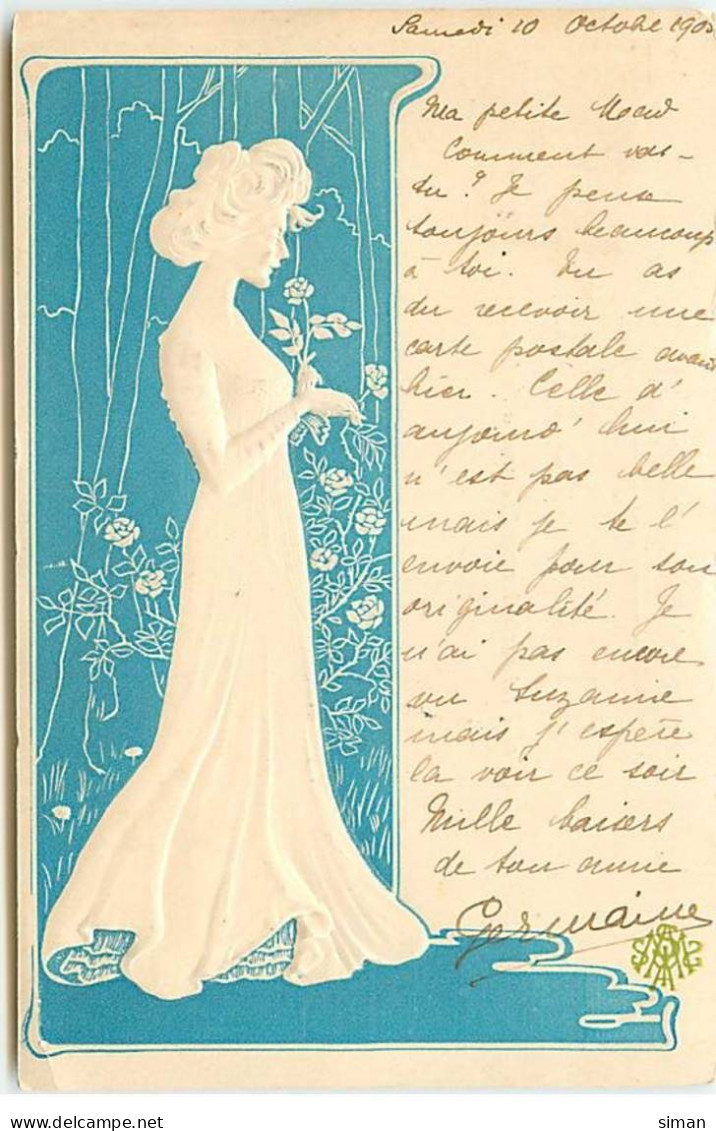 Samedi 10 Octobre 190
Ma petite Maud
Comment vas-
tu? Je pense
toujours beaucoup
à toi. Tu as
du recevoir une
carte postale avant
hier. Celle d'
aujourd'hui
n'est pas belle
mais je te l'
envoie pour son
originalité. Je
n'ai pas encore
vu Suzanne
mais j'espère
la voir ce soir
Mille baisers
de ton amie
Germaine
siman